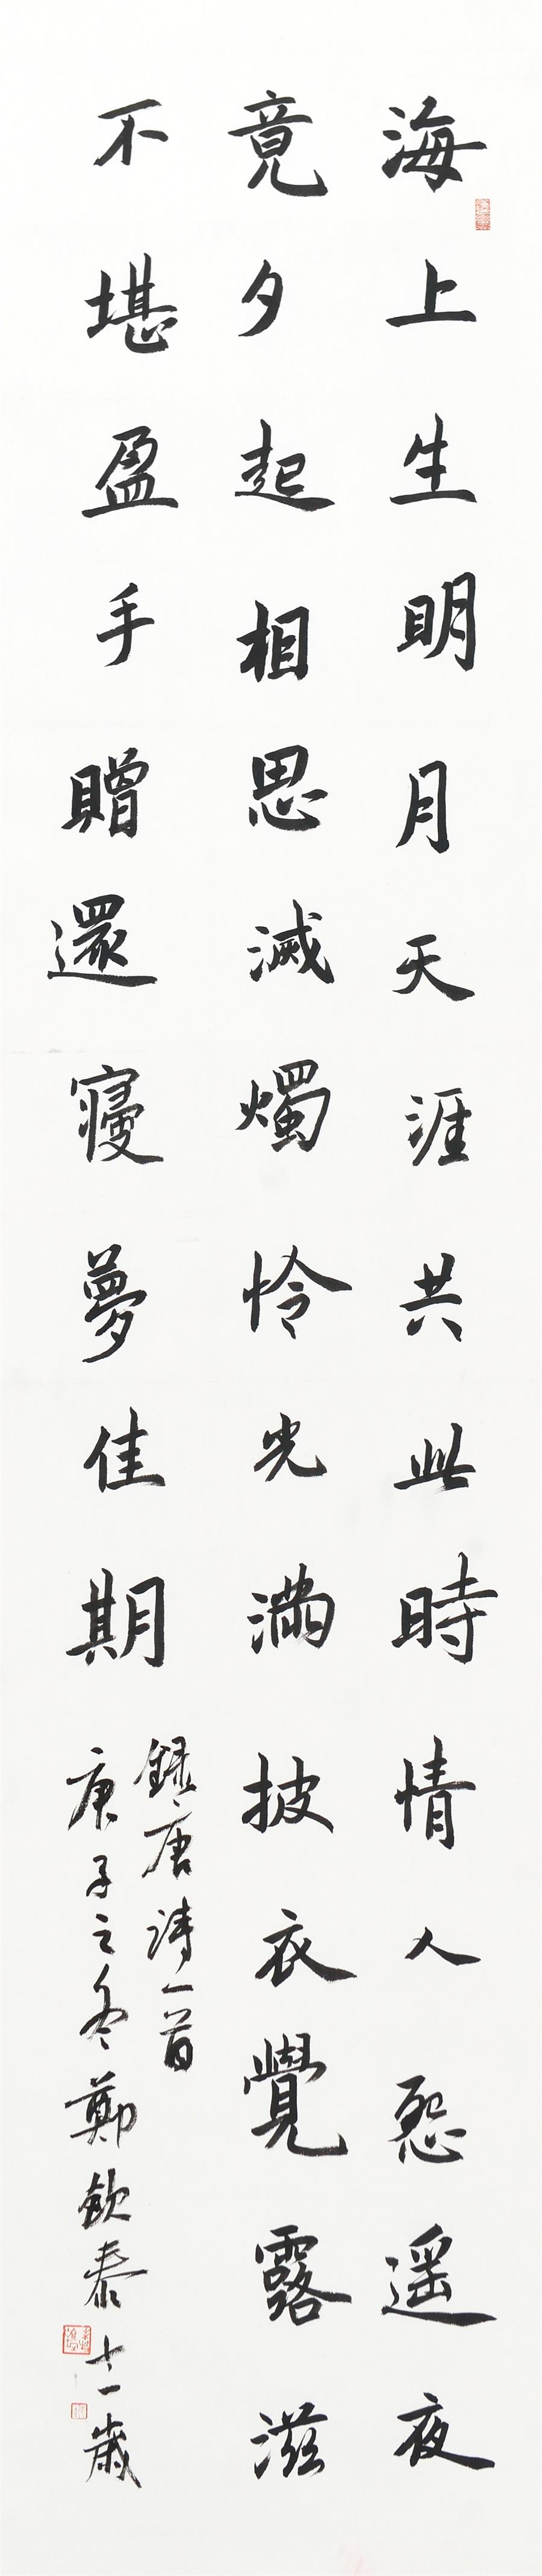 海上生明月天涯共此時情人怨遥夜
竟夕起相思滅燭怜光滿披衣覺露滋
不堪盈手贈還寢夢佳期
録唐詩一首
庚子之冬鄭欽泰十一歲